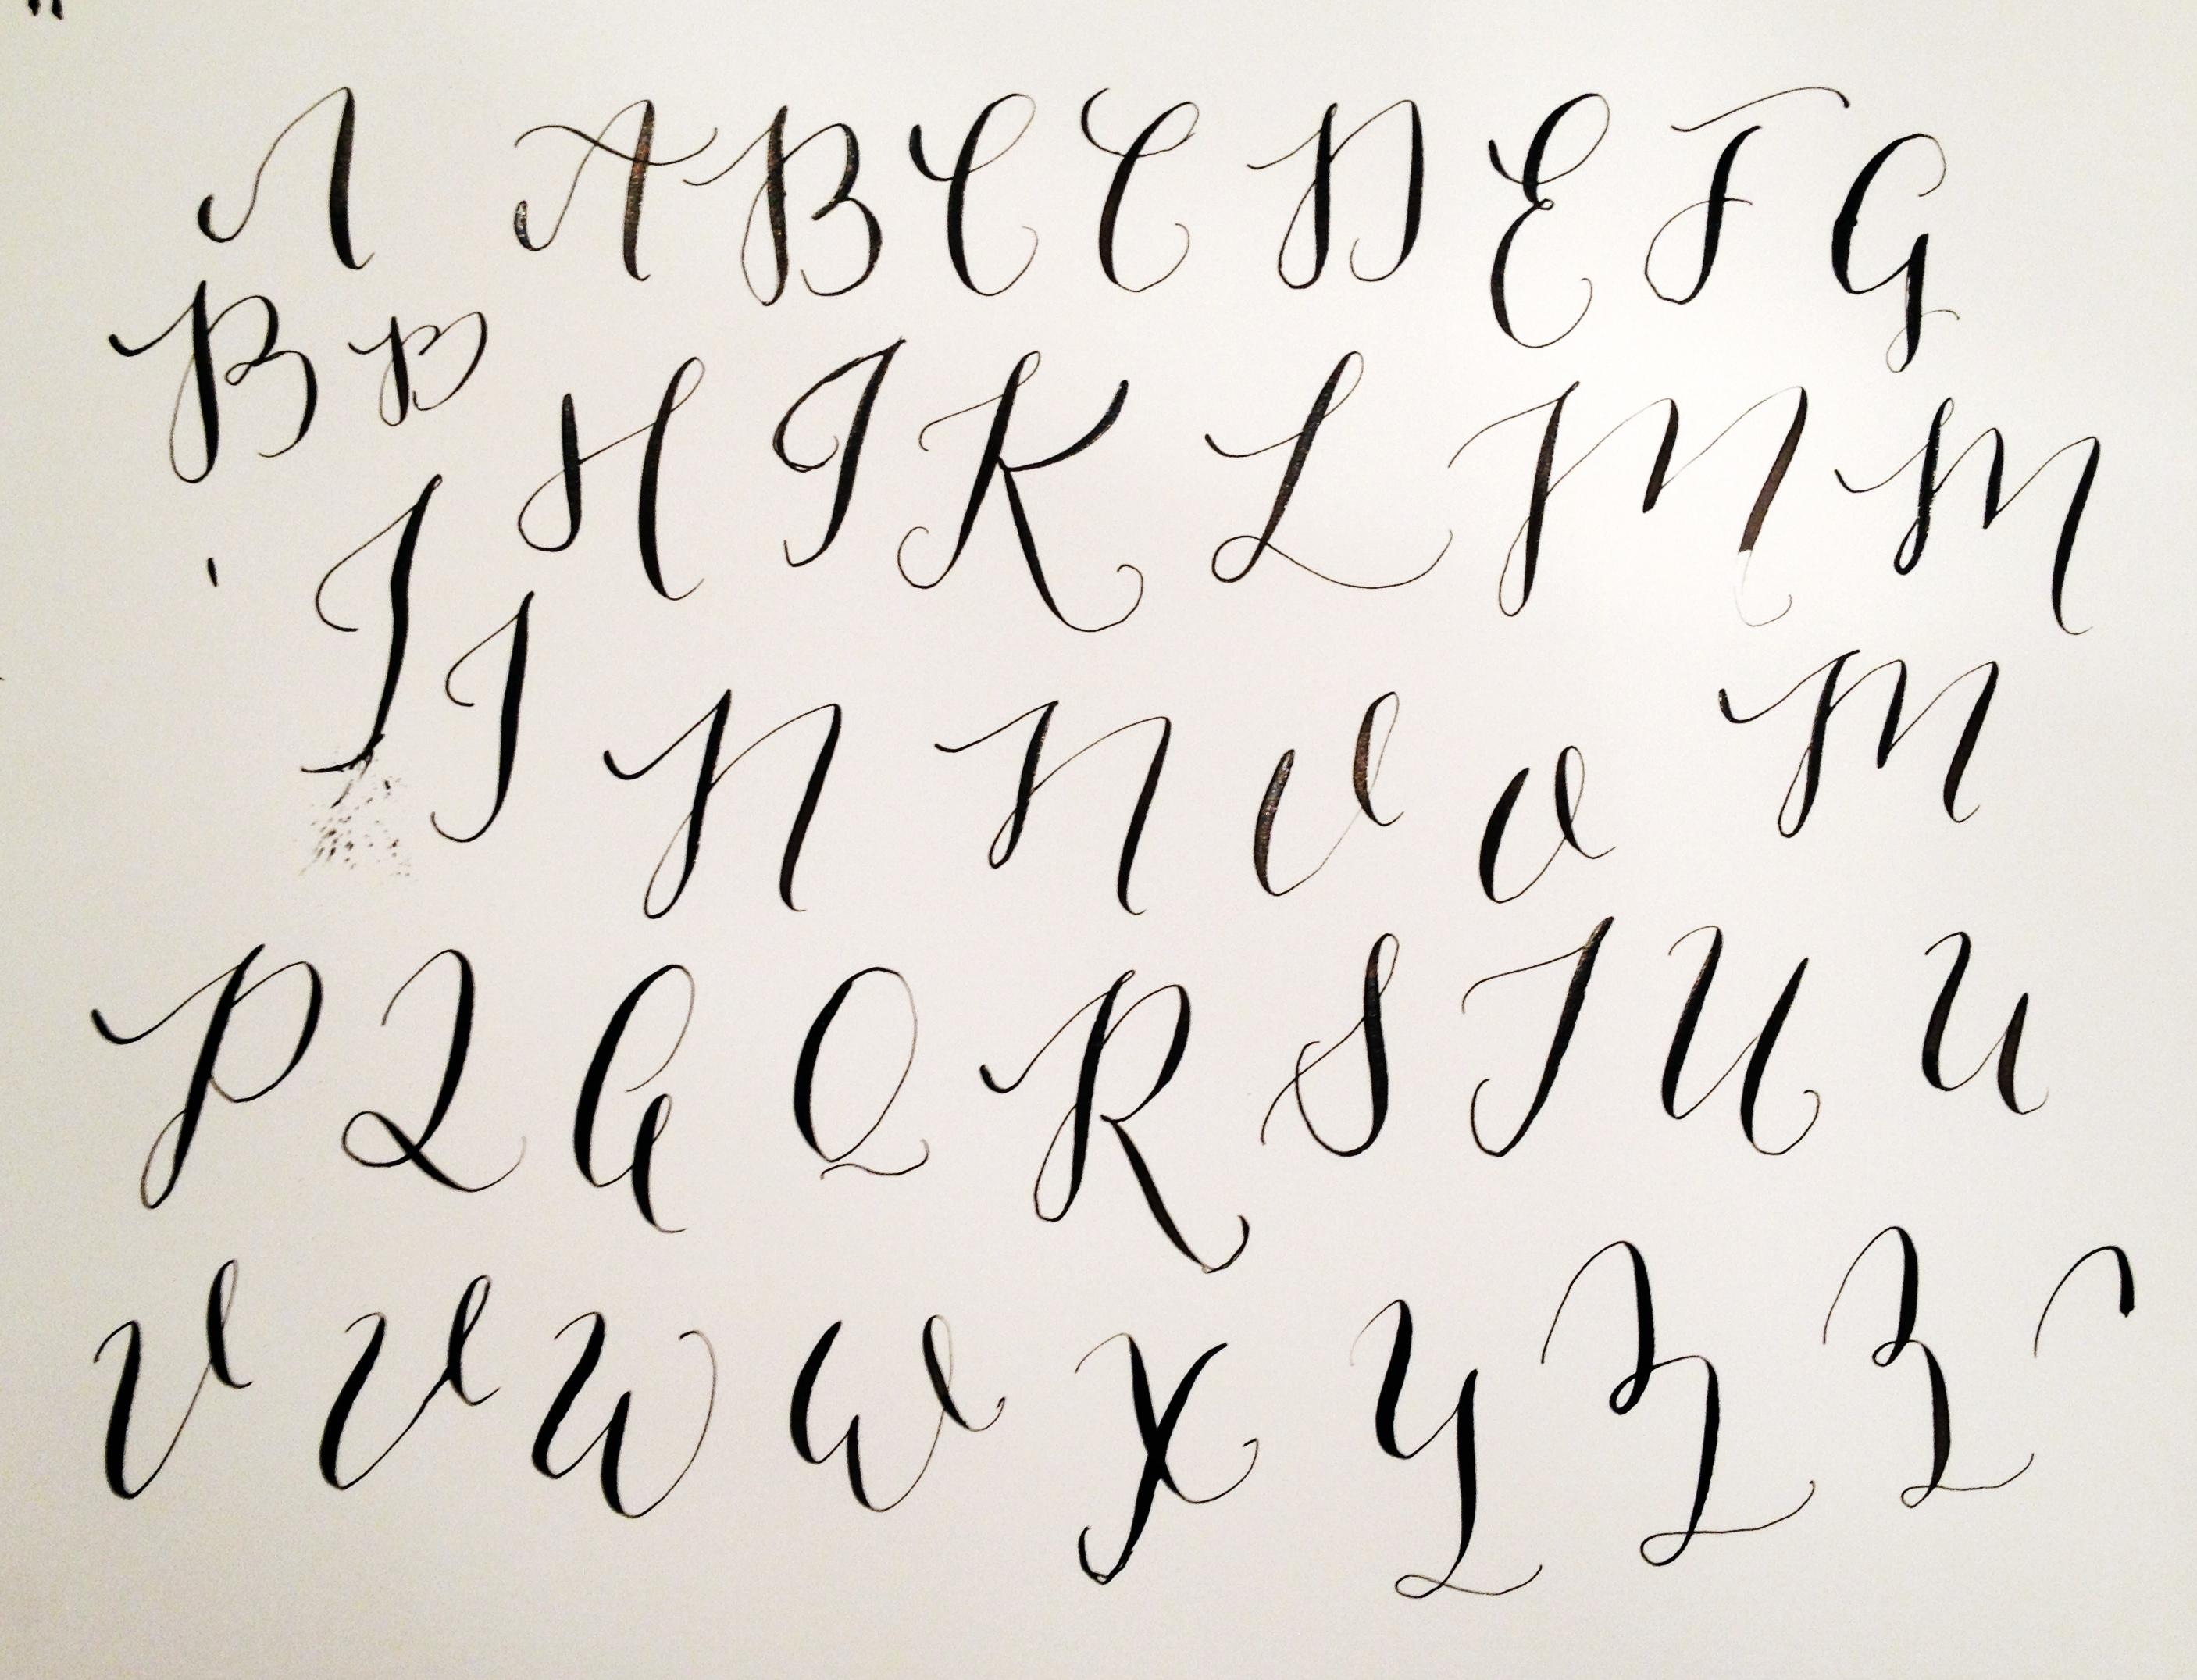 A A B C C D E F G
B B H I K L M M
J J N N O O M
P Q G Q R S T U U
V V W W X Y Z Z